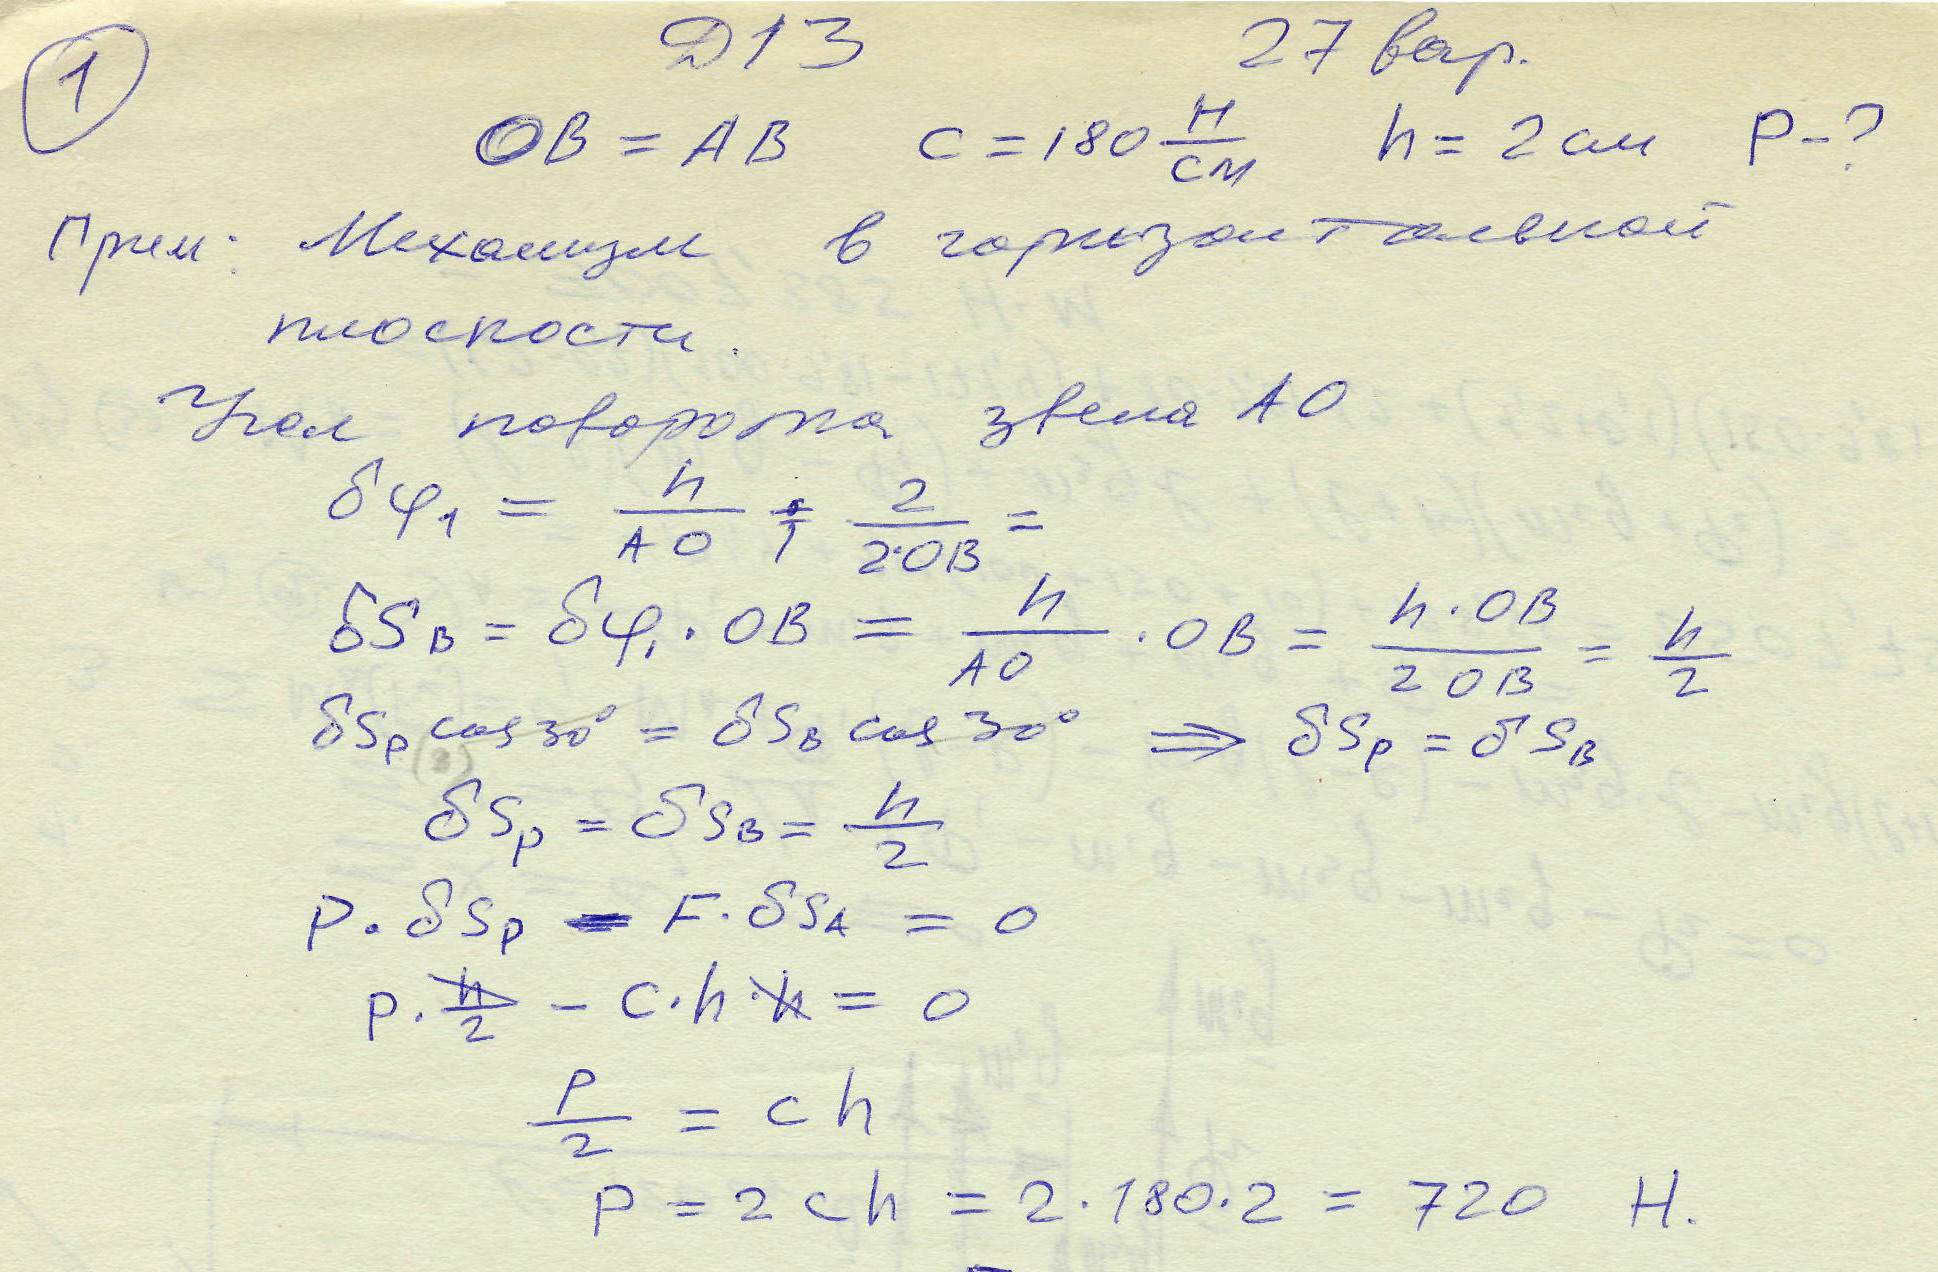 1
Д13 27 вар.
OB = AB c = 180 Н/см h = 2 см P - ?
Прим: Механизм в горизонтальной
плоскости.
Угол поворота звена AO
δφ₁ = h/AO = 2/(2·OB) =
δS_B = δφ₁ · OB = h/AO · OB = h·OB/2OB = h/2
δS_P cos 30° = δS_B cos 30° ⟹ δS_P = δS_B
δS_P = δS_B = h/2
P · δS_P - F · δS_A = 0
P · h/2 - c·h·h = 0
P/2 = ch
P = 2ch = 2·180·2 = 720 Н.